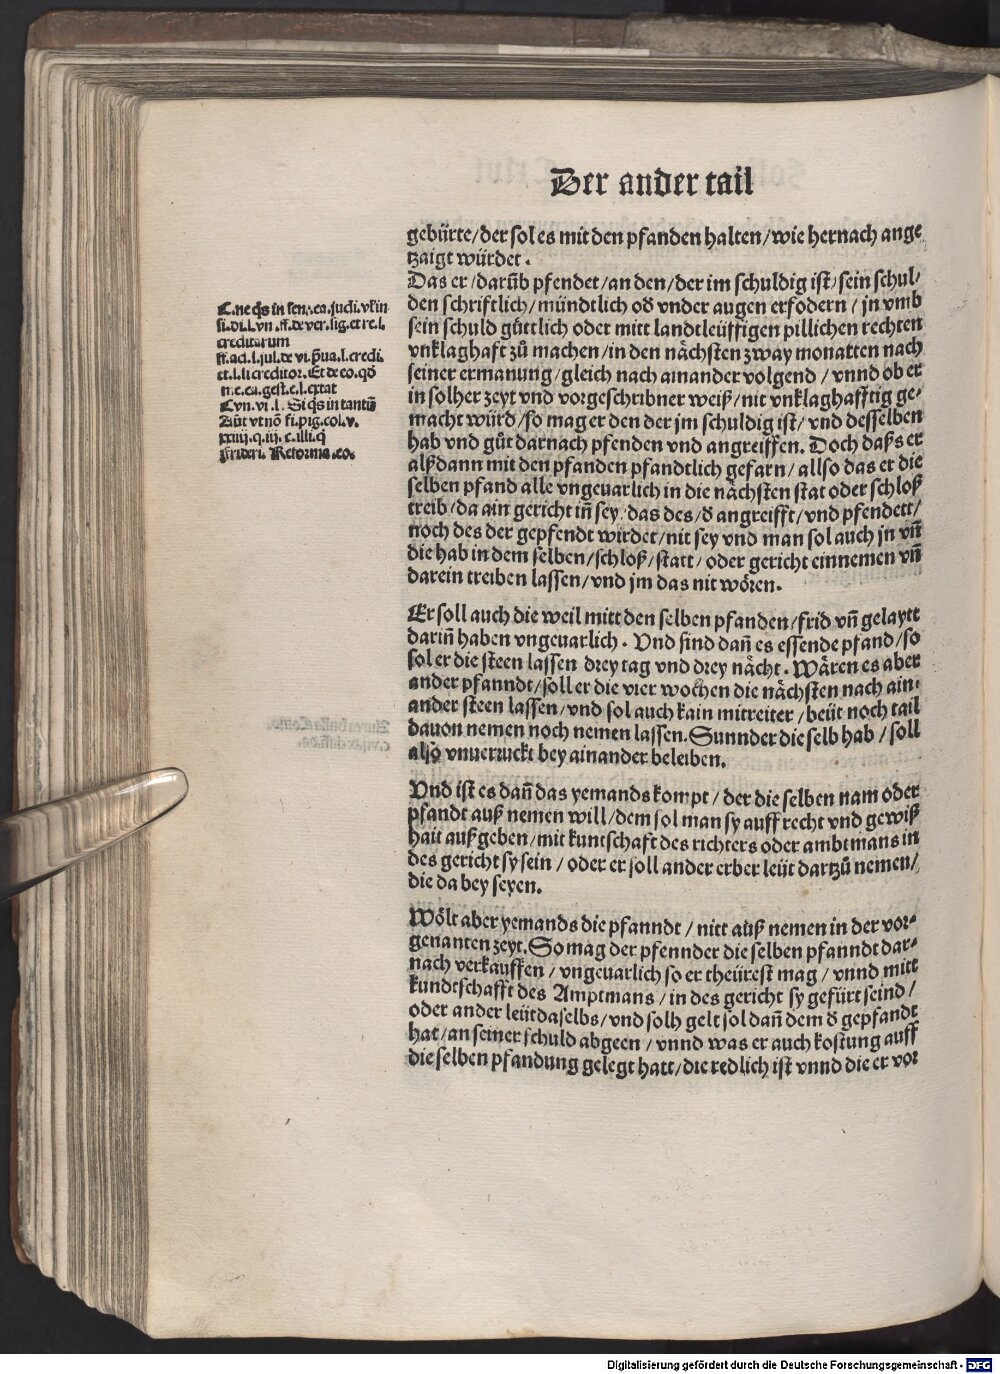 Der ander tail
gebürte/der sol es mit den pfanden halten/wie hernach ange
tzaigt würdet.
Das er/darüb pfendet/an den/der im schuldig ist/sein schul/
den schriftlich/mündtlich od vnder augen erfodern/jn vmb
sein schuld güttlich oder mitt landtleüffigen pillichen rechten
vnklaghafft zů machen/in den nächsten zway monatten nach
seiner ermanung/gleich nach ainander volgend/vnnd ob er
in solher zeyt vnd vorgeschribner weiß/nit vnklaghafftig ge-
macht würd/so mag er den der jm schuldig ist/vnd desselben
hab vnd gůt darnach pfenden vnd angreiffen. Doch daß er
alßdann mit den pfanden pfandtlich gefarn/allso das er die
selben pfand alle vngeuarlich in die nächsten stat oder schloß
treib/da ain gericht iñ sey/das des/d angreifft/vnd pfendett/
noch des der gepfendt wirdet/nit sey vnd man sol auch jn vñ
die hab in dem selben/schloß/statt/oder gericht einnemen vñ
darein treiben lassen/vnd jm das nit wören.
Er soll auch die weil mitt den selben pfanden/frid vñ gelaytt
dariñ haben vngeuarlich. Vnd sind dañ es essende pfand/so
sol er die steen lassen drey tag vnd drey nächt. Wären es aber
ander pfanndt/soll er die vier wochen die nächsten nach ain-
ander steen lassen/vnd sol auch kain mitreiter/beüt noch tail
dauon nemen noch nemen lassen. Sunnder die selb hab/soll
also vnuerruckt bey ainander beleiben.
Vnd ist es dañ das yemands kompt/der die selben nam oder
pfandt auß nemen will/dem sol man sy auff recht vnd gewiß
hait auß geben/mit kuntschaft des richters oder ambtmans in
des gericht sy sein/oder er soll ander erber leüt dartzů nemen/
die da bey seyen.
Wölt aber yemands die pfanndt/nitt auß nemen in der vor-
genanten zeyt. So mag der pfennder die selben pfanndt dar-
nach verkauffen/vngeuarlich so er theürest mag/vnnd mitt
kundtschafft des Amptmans/in des gericht sy gefürt seind/
oder ander leüt daselbs/vnd solh gelt sol dañ dem d gepfandt
hat/an seiner schuld abgeen/vnnd was er auch kostung auff
die selben pfandung gelegt hatt/die redlich ist vnnd die er vor
creditarum
Digitalisierung gefördert durch die Deutsche Forschungsgemeinschaft - DFG